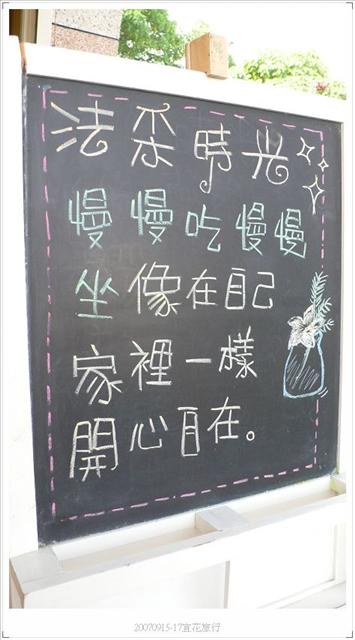 法采時光
慢慢吃慢慢
坐像在自己
家裡一樣
開心自在。
20070915-17宜花旅行